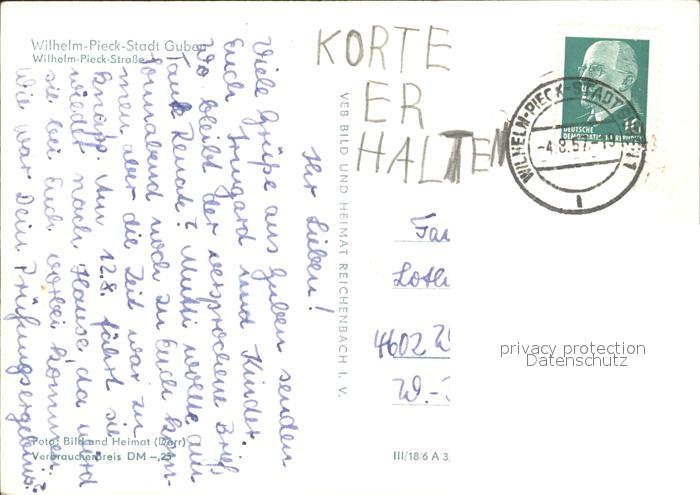 Wilhelm-Pieck-Stadt Guben
Wilhelm-Pieck-Straße
Ihr Lieben!
Viele Grüße aus Guben senden
Euch Irmgard und Kinder.
Wo bleibt der versprochene Brief
Tante Renate? Mutti wollte am
Sonnabend noch zu Euch kom-
men, aber die Zeit war zu
knapp. Am 12.8. fährt sie
wieder nach Hause, da wird
sie bei Euch vorbei kommen.
Wie war Dein Prüfungsergebnis?
Foto: Bild und Heimat (Dörr)
Verbraucherpreis DM -,25
VEB BILD UND HEIMAT REICHENBACH I. V.
KORTE
ER
HALTEN
DEUTSCHE
DEMOKRATISCHE REPUBLIK
WILHELM-PIECK-STADT
-4.8.67
1
Fam
Loth
4602 W
W.-
III/18/6 A 3
privacy protection
Datenschutz